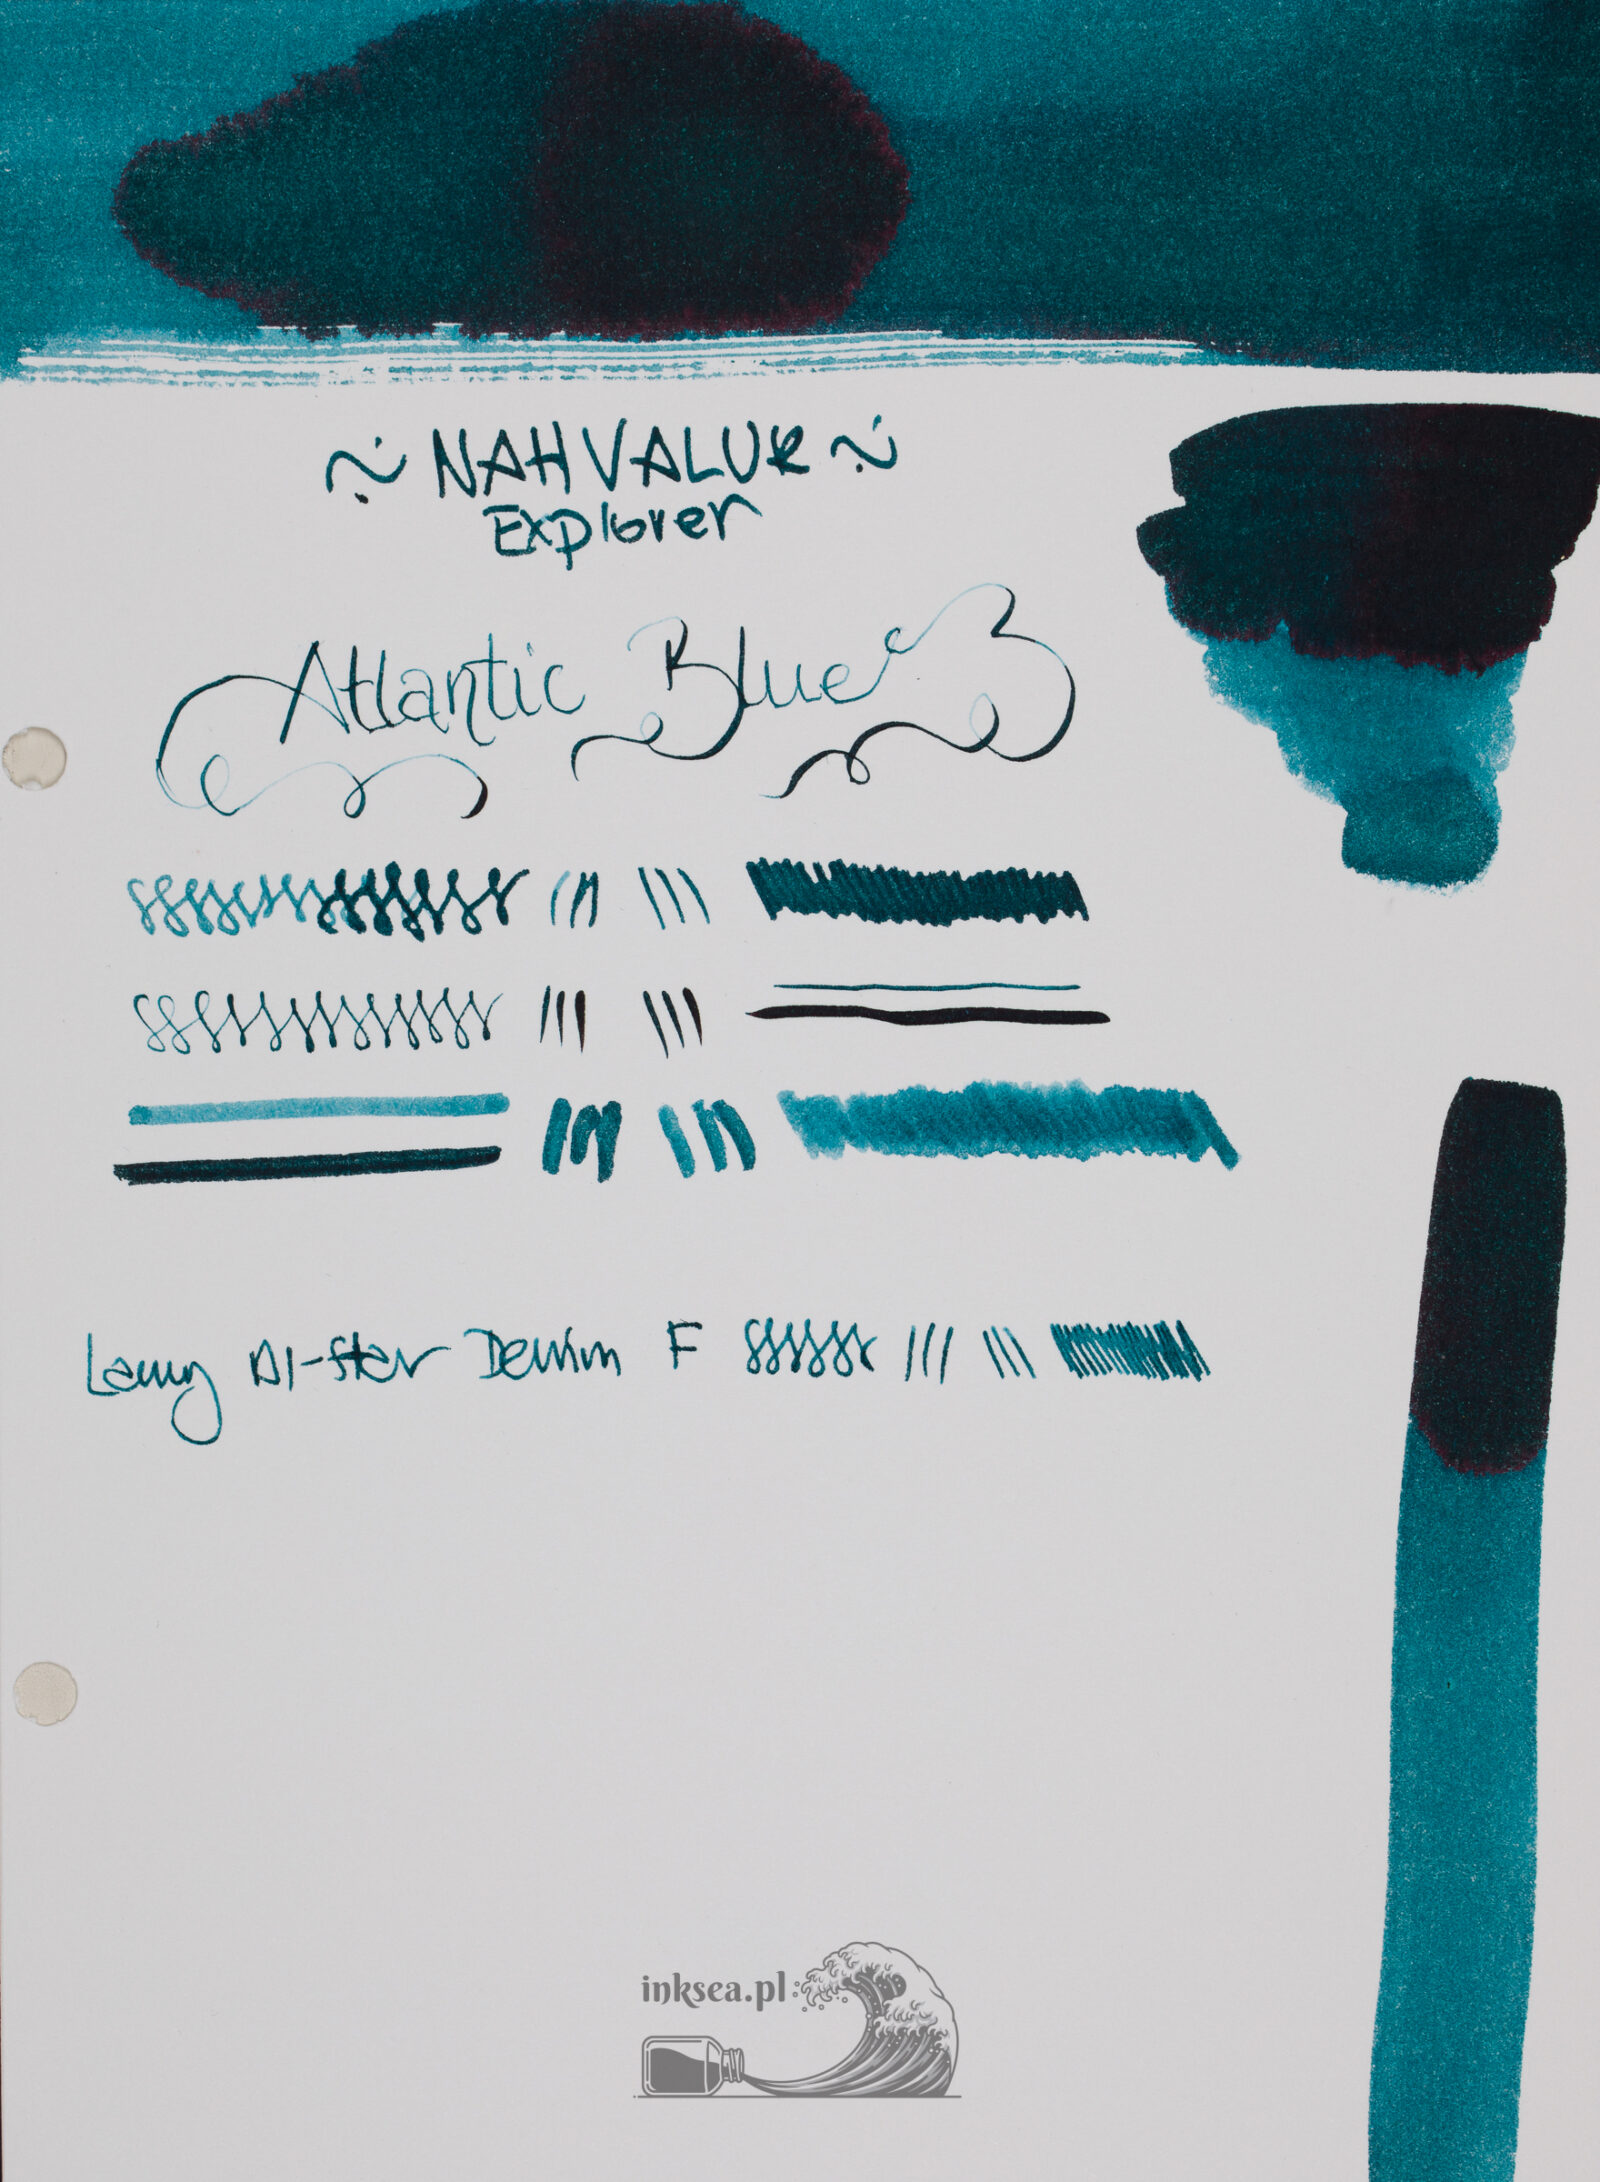 ~ NAHVALUR ~
Explorer
Atlantic Blue
Lamy Al-Star Denim F
inksea.pl